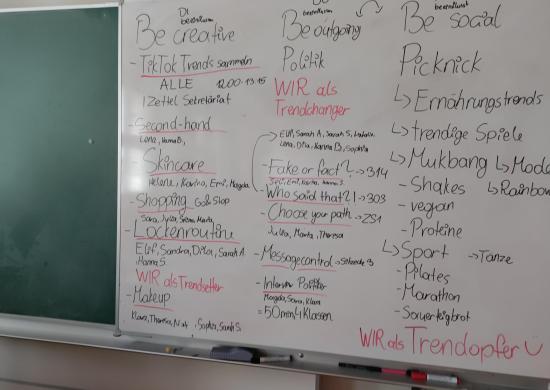 Di
Be creative
- TikTok Trends sammeln
ALLE 12.00-13.15
1 Zettel Sekretäriat
- Second-hand
Lena, Hanna B,
- Skincare
Helene, Karino, Emi, Magda
- Shopping Go & Shop
Sara, Julia, Marta,
- Lockenroutine
Elif, Sandra, Dila, Sarah A
Hanna S
WIR als Trendsetter
- Makeup
Klara, Theresa, Sophia, Sarah S
Be outgoing
Politik
WIR als
Trendchanger
Elif, Sarah A, Sarah S,
Lena, Dila, Karina B, Sophia
- Fake or fact? → 314
- Who said that?! → 303
- Choose your path → 251
Julia, Marta, Theresa
- Messagecontrol →
- Interview Politiker
Magda, Sara, Klara
= 50min, 4 Klassen
Be social
Picknick
↳ Ernährungstrends
↳ trendige Spiele
↳ Mukbang ↳ Mode
- Shakes ↳ Rainbow
- vegan
- Proteine
↳ Sport → Tänze
- Pilates
- Marathon
- Sauerteigbrot
WIR als Trendopfer